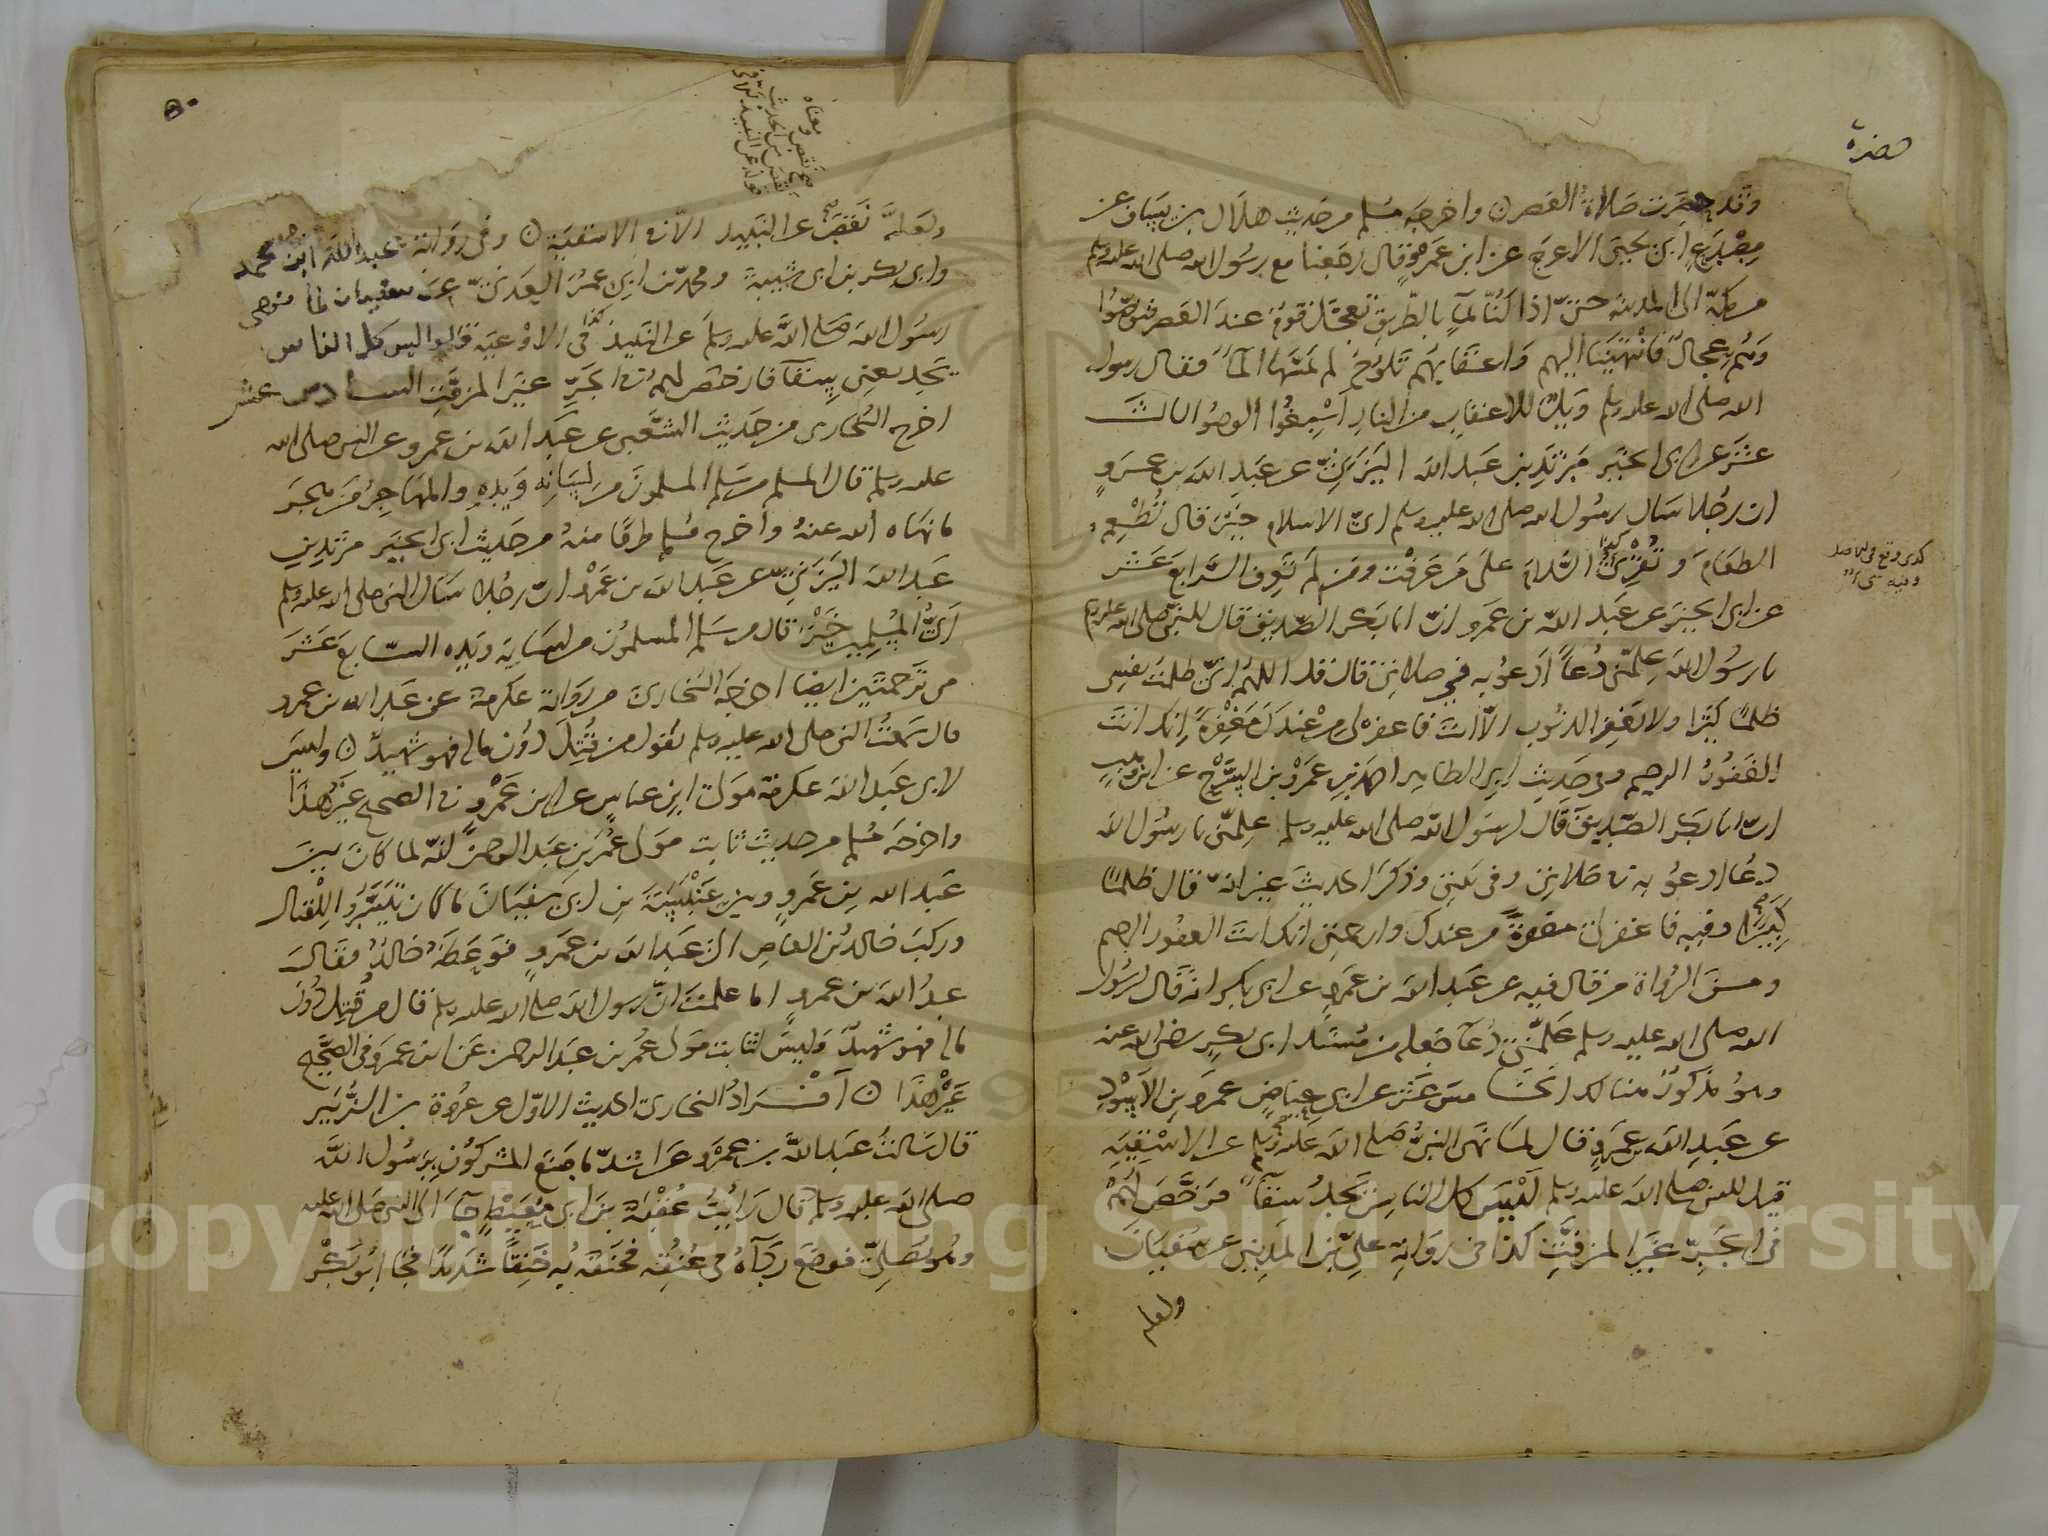 حضرة
وقد حضرت صلاة العصر ن واخرجه مسلم من حديث هلال بن يساف عن
مصدع ابن يحيى الاعرج عن ابن عمرو قال رجعنا مع رسول الله صلى الله عليه وسلم
من مكة الى المدينة حتى اذا كنا بماء بالطريق تعجل قوم عند العصر فتوضوا
وهم عجال فانتهينا اليهم واعقابهم تلوح لم يمسها الماء فقال رسول
الله صلى الله عليه وسلم ويل للاعقاب من النار اسبغوا الوضو الثالث
عشر عن ابي الخير مرثد بن عبد الله اليزني عن عبد الله بن عمرو
ان رجلا سال رسول الله صلى الله عليه وسلم اي الاسلام خير قال تطعم
الطعام وتقرئ السلام على من عرفت ومن لم تعرف الرابع عشر
كذى وقع في الاصل
عن ابي الخير عن عبد الله بن عمرو ان ابا بكر الصديق قال للنبي صلى الله عليه وسلم
يا رسول الله علمني دعا ادعو به في صلاتي قال قل اللهم اني ظلمت نفسي
ظلما كثيرا ولا يغفر الذنوب الا انت فاغفر لي من عندك مغفرة انك انت
الغفور الرحيم وفي حديث ابي الطاهر احمد بن عمرو بن السرح عن ابن وهب
ان ابا بكر الصديق قال لرسول الله صلى الله عليه وسلم علمني يا رسول الله
دعا ادعو به في صلاتي وفي بيتي وذكر الحديث غير انه قال ظلما
كبيرا وفيه فاغفر لي مغفرة من عندك وارحمني انك انت الغفور الرحيم
ومن الرواة من قال فيه عن عبد الله بن عمرو عن ابي بكر انه قال لرسول
الله صلى الله عليه وسلم علمني دعا فجعله من مسند ابي بكر رضي الله عنه
وهو مذكور هنالك الخامس عشر عن ابي عياض عمرو بن الاسود
عن عبد الله بن عمرو قال لما نهى النبي صلى الله عليه وسلم عن الاسقية
قيل للنبي صلى الله عليه وسلم ليس كل الناس يجد سقآ فرخص لهم
في الجر غير المزفت كذا في رواية علي بن المديني عن سفيان
ولعله
٥٠
ولعله نقص عن النبيذ الا في الاسقية ن وفي رواية عبد الله ابن محمد
وابي بكر بن ابي شيبة ومحمد بن ابي عمر العدني عن سفيان لما نهى
رسول الله صلى الله عليه وسلم عن النبيذ في الاوعية قالوا ليس كل الناس
يجد يعني سقآ فارخص لهم في الجر غير المزفت السادس عشر
اخرج البخاري من حديث الشعبي عن عبد الله بن عمرو عن النبي صلى الله
عليه وسلم قال المسلم من سلم المسلمون من لسانه ويده والمهاجر من هجر
ما نهاه الله عنه واخرج مسلم طرفا منه من حديث ابي الخير مرثد بن
عبد الله اليزني عن عبد الله بن عمرو ان رجلا سال النبي صلى الله عليه وسلم
اي المسلمين خير قال من سلم المسلمون من لسانه ويده السابع عشر
من ترجمتين ايضا اخرجه البخاري من رواية عكرمة عن عبد الله بن عمرو
قال سمعت النبي صلى الله عليه وسلم يقول من قتل دون ماله فهو شهيد ن وليس
لابي عبد الله عكرمة مولى ابن عباس عن ابن عمرو في الصحيح غير هذا
واخرجه مسلم من حديث ثابت مولى عمر بن عبد الرحمن انه لما كان بين
عبد الله بن عمرو وبين عنبسة بن ابي سفيان ما كان تيسروا للقتال
وركب خالد بن العاص الى عبد الله بن عمرو فوعظه خالد فقال
عبد الله بن عمرو اما علمت ان رسول الله صلى الله عليه وسلم قال من قتل دون
ماله فهو شهيد وليس لثابت مولى عمر بن عبد الرحمن عن ابن عمرو في الصحيح
غير هذا ن افراد البخاري الحديث الاول عن عروة بن الزبير
قال سالت عبد الله بن عمرو عن اشد ما صنع المشركون برسول الله
صلى الله عليه وسلم قال رايت عقبة بن ابي معيط جآ الى النبي صلى الله عليه
وهو يصلي فوضع ردآه في عنقه فخنقه به خنقا شديدا فجا ابو بكر
Copyright © King Saud University